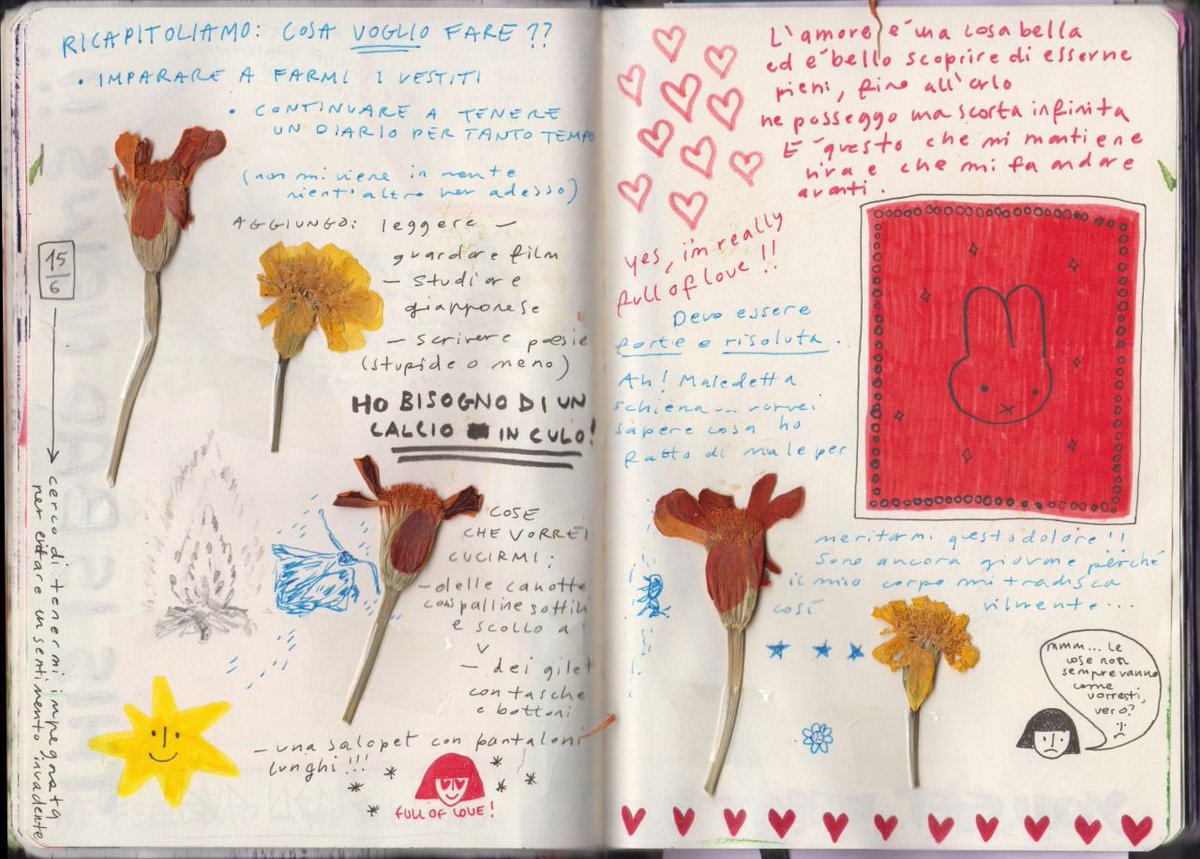 RICAPITOLIAMO: COSA VOGLIO FARE ??
• IMPARARE A FARMI I VESTITI
• CONTINUARE A TENERE
UN DIARIO PER TANTO TEMPO
(non mi viene in mente
nient'altro per adesso)
AGGIUNGO: leggere –
guardare film
– studiare
giapponese
– scrivere poesie
(stupide o meno)
HO BISOGNO DI UN
CALCIO IN CULO!
15
6
cerco di tenermi impegnata
per evitare un sentimento invadente
COSE
CHE VORREI
CUCIRMI:
– delle canotte
con spalline sottili
e scollo a
v
– dei gilet
con tasche
e bottoni
– una salopet con pantaloni
lunghi!!!
FULL OF LOVE!
L'amore é una cosa bella
ed é bello scoprire di esserne
pieni, fino all'orlo
ne posseggo una scorta infinita
E' questo che mi mantiene
viva e che mi fa andare
avanti.
yes, i'm really
full of love!!
Devo essere
forte e risoluta.
Ah! Maledetta
schiena... vorrei
sapere cosa ho
fatto di male per
meritarmi questo dolore!!
Sono ancora giovane perché
il mio corpo mi tradisca
così vilmente...
mmm... le
cose non
sempre vanno
come
vorresti,
vero?